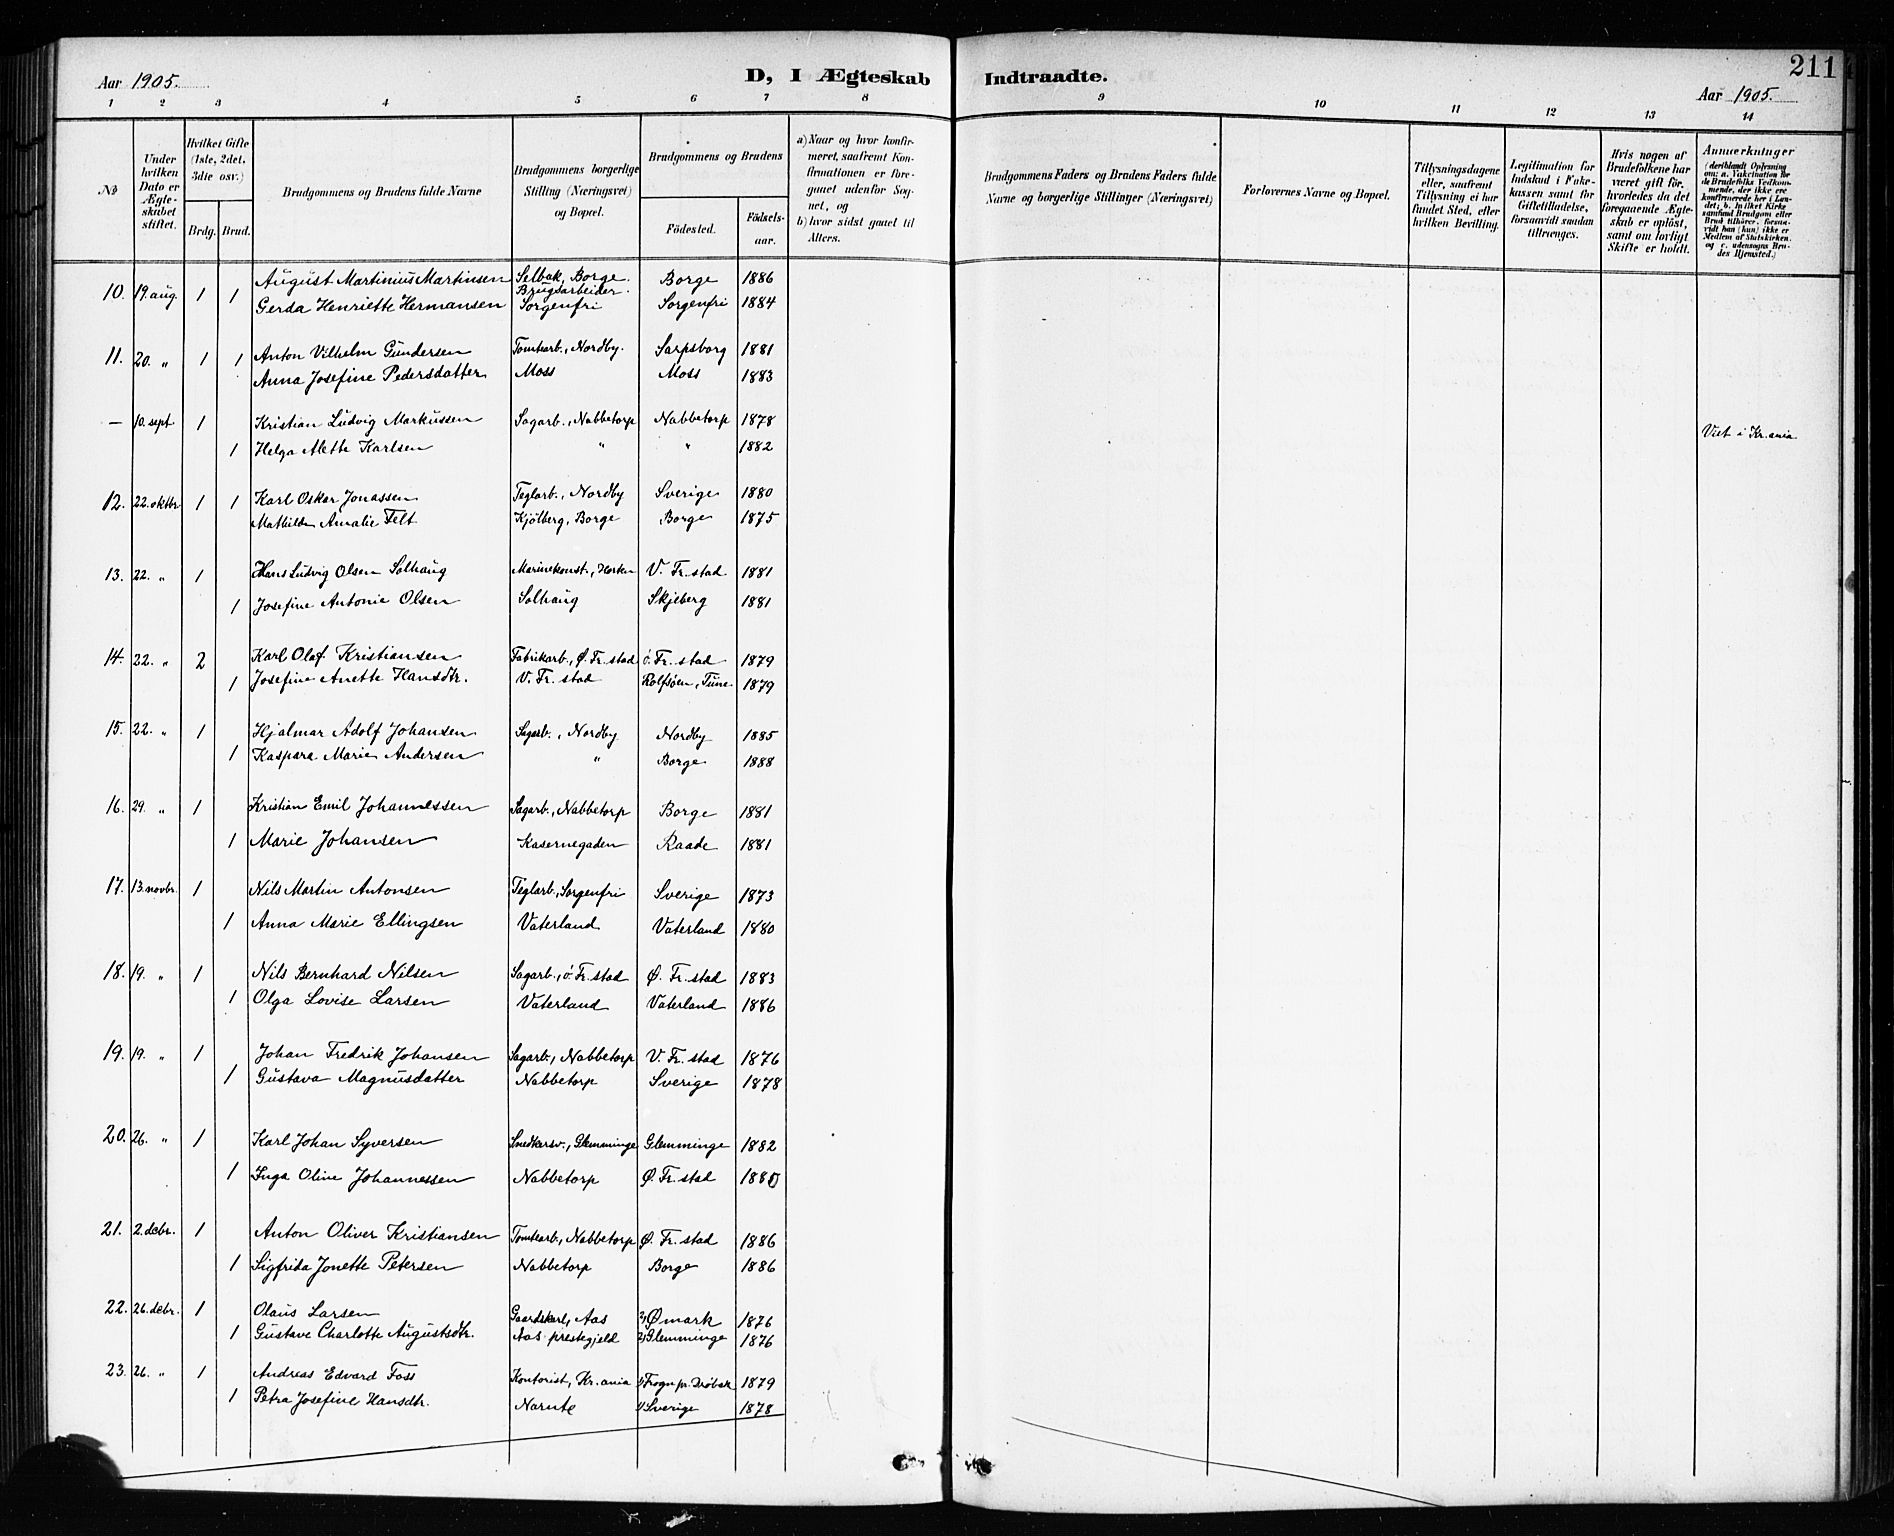 Aar 1905.
D, I Ægteskab Indtraadte.
211
Aar 1905.
1 2 3 4 5 6 7 8 9 10 11 12 13 14
No
Under hvilken Dato er Ægteskabet stiftet.
Hvilket Gifte (1ste, 2det, 3die osv.)
Brdg. Brud.
Brudgommens og Brudens fulde Navne
Brudgommens borgerlige Stilling (Næringsvei) og Bopæl.
Brudgommens og Brudens
Födested.
Födselsaar.
a) Naar og hvor konfirmeret, saafremt Konfirmationen er foregaaet udenfor Sognet, og
b) hvor sidst gaaet til Alters.
Brudgommens Faders og Brudens Faders fulde Navne og borgerlige Stillinger (Næringsvei)
Forlovernes Navne og Bopæl.
Tillysningsdagene eller, saafremt Tillysning ei har fundet Sted, efter hvilken Bevilling.
Legitimation for Indskud i Fakekassen samt for Giftetilladelse, forsaavidt saadan tiltrænges.
Hvis nogen af Brudefolkene har været gift för, hvorledes da det foregaaende Ægteskab er oplöst, samt om lovligt Skifte er holdt.
Anmærkninger
(deriblandt Oplysning om: a. Vakcination for de Brudefolks Vedkommende, der ikke ere konfirmerede her i Landet; b. hvilket Kirkesamfund Brudgom eller Brud tilhörer, forsaavidt han (hun) ikke er Medlem af Statskirken, og c. udensogns Brudes Hjemsted.)
10. 19. aug. 1 1 August Martinius Martinsen Selbak, Borge. Brugsarbeider. Borge 1886
Gerda Henriette Hermansen Sorgenfri Sorgenfri 1884
11. 20. " 1 1 Anton Vilhelm Gundersen Tomtearb., Nordby. Sarpsborg 1881
Anna Josefine Pedersdatter Moss Moss 1883
— 10. sept. 1 Kristian Ludvig Markussen Sagarb., Nabbetorp Nabbetorp 1878
Viet i Kr.ania
1 Helga Alette Karlsen " " 1882
12. 22. oktbr. 1 1 Karl Oskar Jonassen Teglarb., Nordby Sverige 1880
Mathilde Amalie Felt Kjölberg, Borge Borge 1875
13. 22. " 1 Hans Ludvig Olsen Solhaug Marinekonst., Horten V. Fr. stad 1881
1 Josefine Antonie Olsen Solhaug Skjeberg 1881
14. 22. " 2 Karl Olaf Kristiansen Fabrikarb., Ø. Fr. stad ö. Fr. stad 1879
1 Josefine Anette Hansdtr. V. Fr. stad Rolfsöen, Tune 1879
15. 22. " 1 Hjalmar Adolf Johansen Sagarb., Nordby Nordby 1885
1 Kaspara Marie Andersen " Borge 1888
16. 29. " 1 Kristian Emil Johannessen Sagarb., Nabbetorp Borge 1881
1 Marie Johansen Kasernegaden Raade 1881
17. 13. novbr. 1 Nils Martin Antonsen Teglarb., Sorgenfri Sverige 1873
1 Anna Marie Ellingsen Vaterland Vaterland 1880
18. 19. " 1 Nils Bernhard Nilsen Sagarb., ö. Fr. stad Ø. Fr. stad 1883
1 Olga Lovise Larsen Vaterland Vaterland 1886
19. 19. " 1 Johan Fredrik Johansen Sagarb., Nabbetorp V. Fr. stad 1876
1 Gustava Magnusdatter Nabbetorp Sverige 1878
20. 26. " 1 Karl Johan Syversen Snedkersv., Glemminge Glemminge 1882
1 Inga Oline Johannessen Nabbetorp Ø. Fr. stad
21. 2. debr. 1 Anton Oliver Kristiansen Tomtearb., Nabbetorp Ø. Fr. stad 1886
1 Sigfrida Jonette Petersen Nabbetorp Borge 1886
22. 26. debr. 1 Olaus Larsen Gaardskarl, Aas Ømark 1876
1 Gustave Charlotte Augustsdtr. Aas prestegjeld Glemminge 1876
23. 26. " 1 Andreas Edvard Foss Kontorist, Kr. ania Frogn pr. Dröbak 1879
1 Petra Josefine Hansdtr. Narnte Sverige 1878